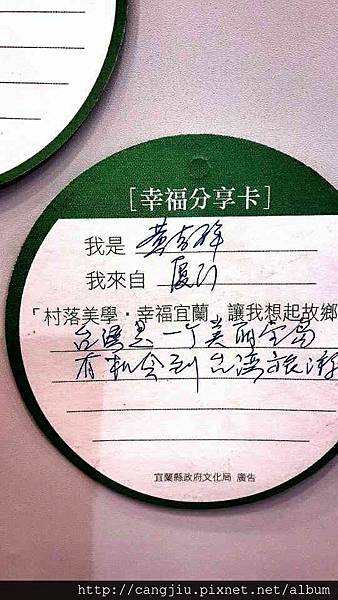 [幸福分享卡]
我是 黄吉祥
我來自 厦门
「村落美學·幸福宜蘭，讓我想起故鄉
台湾是一个美丽宝岛
有机会到台湾旅游
宜蘭縣政府文化局 廣告
http://cangjiu.pixnet.net/album